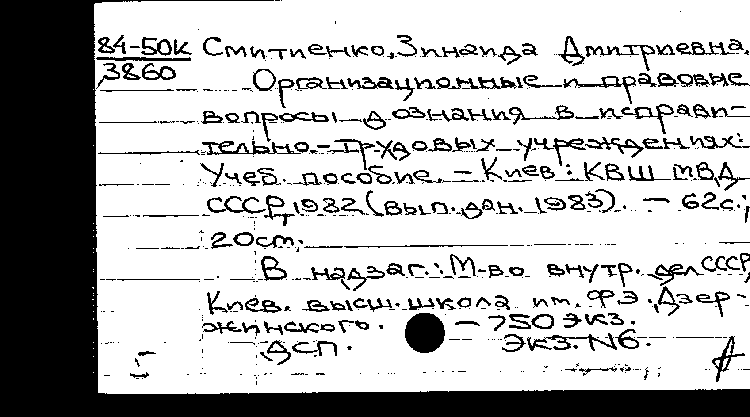 84-50К Смитиенко, Зинаида Дмитриевна.
3860
Организационные и правовые
вопросы дознания в исправи-
тельно-трудовых учреждениях:
Учеб. пособие. - Киев: КВШ МВД
СССР, 1982 (вып. дан. 1983). - 62с.;
20см.
В надзаг.: М-во внутр. дел СССР,
Киев. высш. школа им. Ф.Э. Дзер-
жинского. - 750 экз.
ДСП. Экз. N6.
5